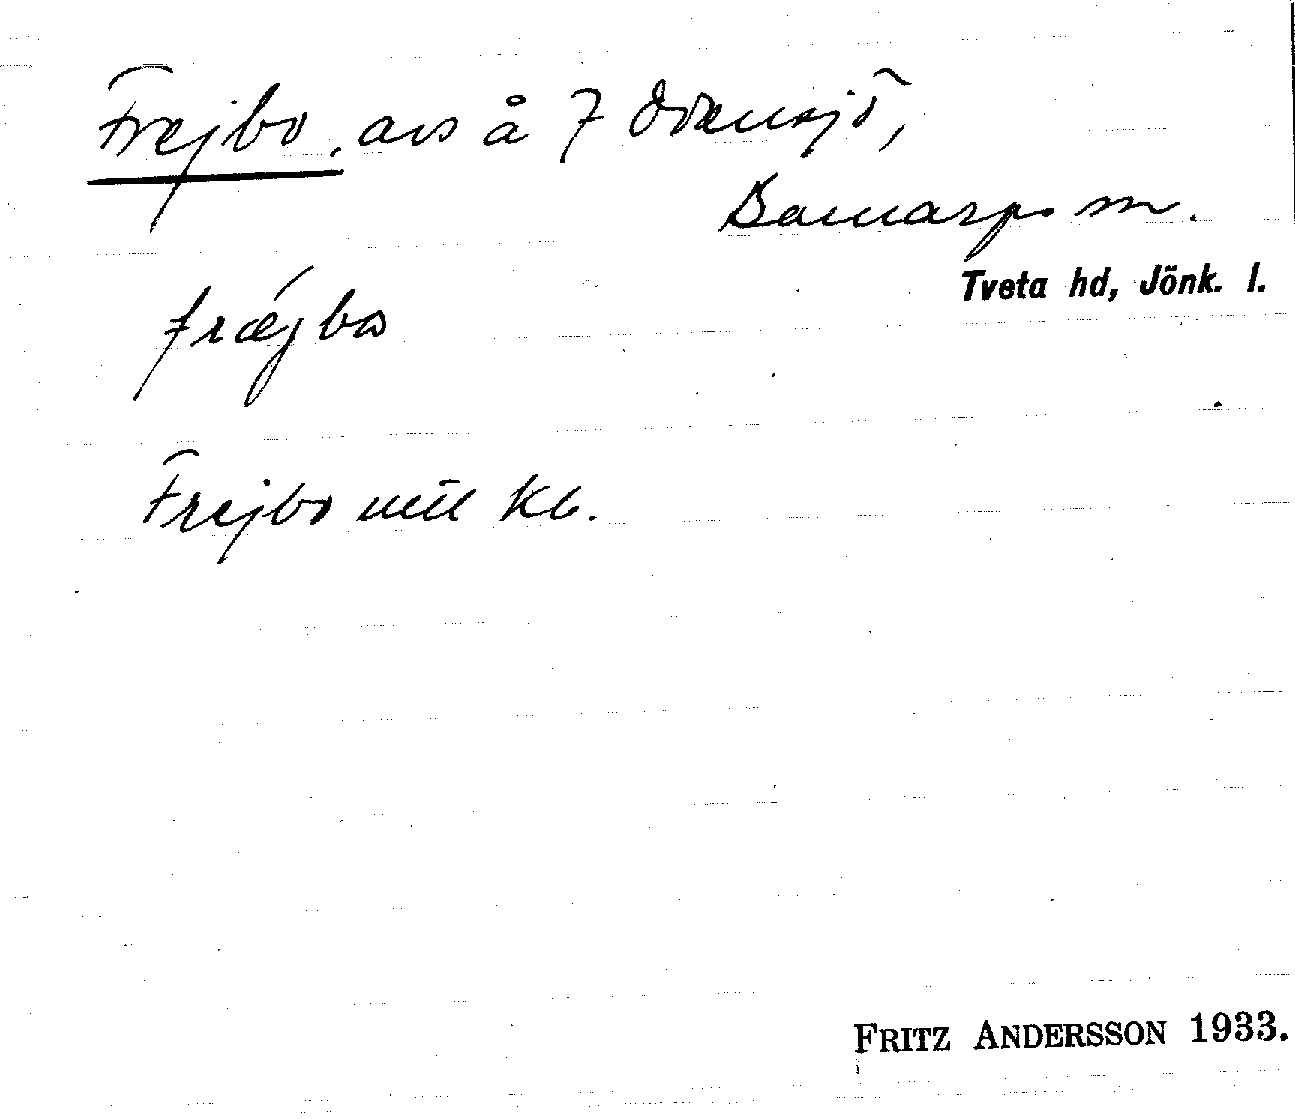 Frejbo, avs å 7 Svensjö,
Barnarps sn.
Tveta hd, Jönk. l.
frǽjbo
Frejbo mtl kb.
FRITZ ANDERSSON 1933.